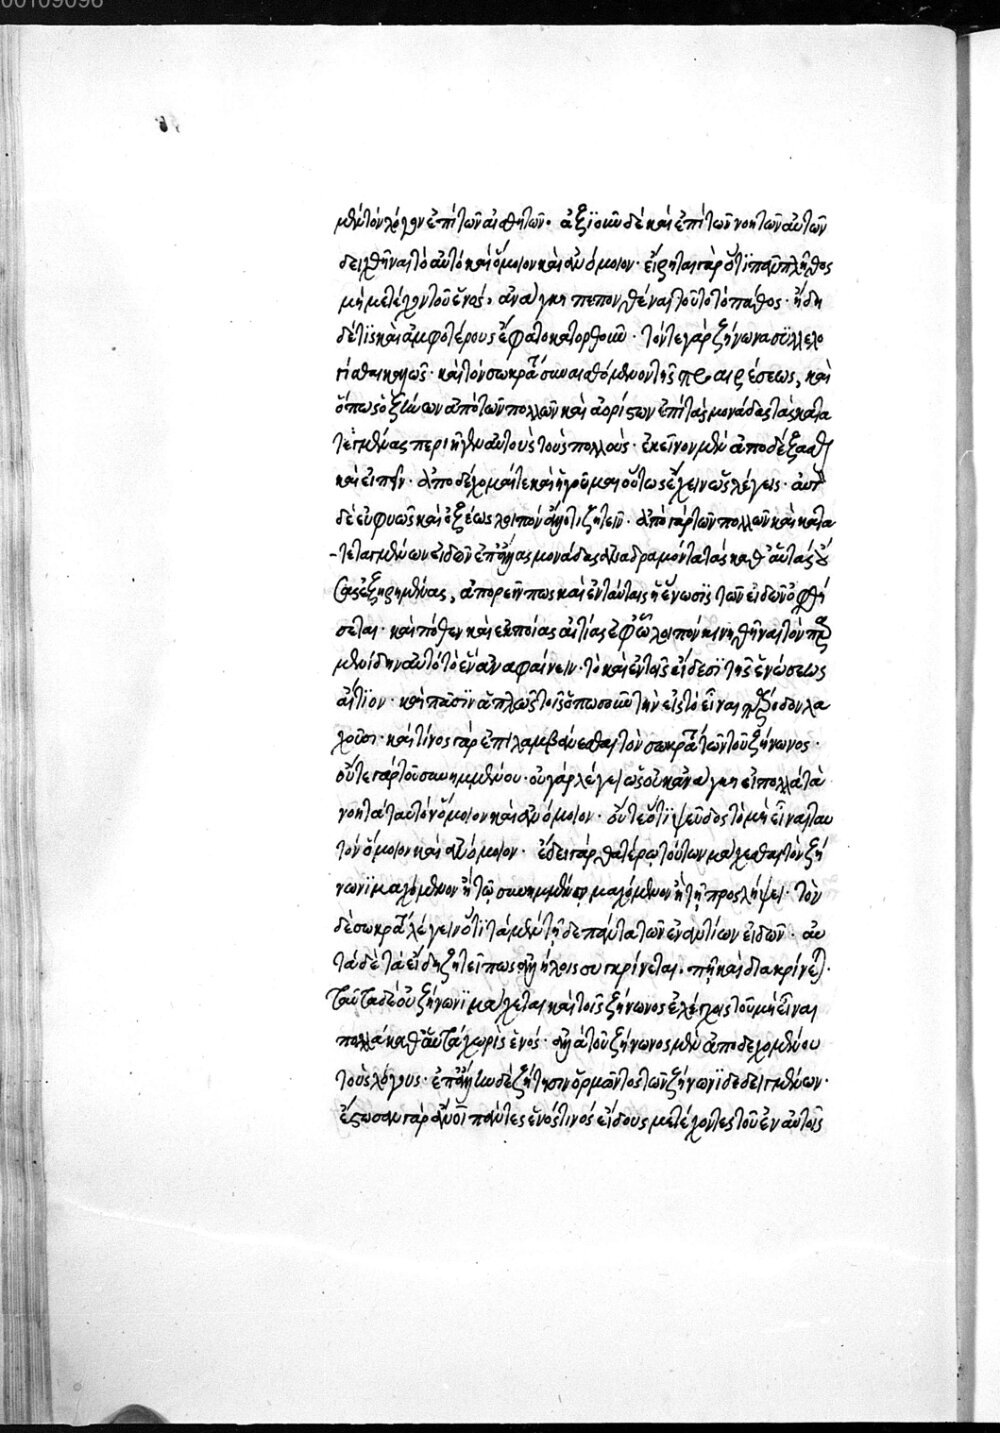 00109096
μὲν τὸν λόγον ἐπὶ τῶν αἰσθητῶν· ἀξιοῦν δὲ καὶ ἐπὶ τῶν νοητῶν αὐτῶν
δειχθῆναι τὸ αὐτὸ καὶ ὅμοιον καὶ ἀνόμοιον· εἴρηται γὰρ ὅτι πᾶν πλῆθος
μὴ μετέχον τοῦ ἑνός, ἀνάγκη πεπονθέναι τοῦτο τὸ πάθος· ἤδη
δέ τις καὶ ἀμφοτέρους ἔφατο κατορθοῦν· τόν τε γὰρ ζήνωνα συλλελο
γίσθαι καλῶς· καὶ τὸν σωκράτη συναισθόμενον τῆς προαιρέσεως, καὶ
ὅπως ὁ ζήνων ἀπὸ τῶν πολλῶν καὶ ἀορίστων ἐπὶ τὰς μονάδας τὰς κατα
τεταγμένας περιῆγεν αὐτοὺς τοὺς πολλούς· ἐκεῖνον μὲν ἀποδέξασθαι
καὶ εἰπεῖν· ἀποδέχομαί τε καὶ ἡγοῦμαι οὕτως ἔχειν ὡς λέγεις· αὐτὸν
δὲ εὐφυῶς καὶ ἑξῆς λοιπὸν ἀντιζητεῖν· ἀπὸ γὰρ τῶν πολλῶν καὶ κατα
τεταγμένων εἰδῶν ἐπὶ τὰς μονάδας ἀναδραμόντα τὰς καθ' αὑτὰς οὔ
σας ἐξῃρημένας, ἀπορεῖν πῶς καὶ ἐν ταύταις ἡ ἕνωσις τῶν εἰδῶν ὀφθή
σεται· καὶ πόθεν καὶ ἐκ ποίας αἰτίας
μενίδην αὐτὸ τὸ ἓν ἀναφαίνειν· τὸ καὶ ἐν τοῖς εἴδεσι τῆς ἑνώσεως
αἴτιον· καὶ πᾶσιν ἁπλῶς τοῖς ὁπωσοῦν τὴν εἰς τὸ εἶναι πρόοδον λα
χοῦσι· καὶ τίνος γὰρ ἐπιλαμβάνεσθαι τὸν σωκράτη τῶν τοῦ ζήνωνος·
οὔτε γὰρ τοῦ συνημμένου· οὐ γὰρ λέγει ὡς οὐκ ἀνάγκη εἰ πολλὰ τὰ
νοητὰ ταυτὸν ὅμοιον καὶ ἀνόμοιον· οὔτε ὅτι ψεῦδος τὸ μὴ εἶναι ταυ
τὸν ὅμοιον καὶ ἀνόμοιον· ἔδει γὰρ θατέρῳ τούτων μάχεσθαι τὸν ζή
νωνι μαχόμενον ἢ τῷ συνημμένῳ μαχόμενον ἢ τῇ προσλήψει· τὸν
δὲ σωκράτη λέγειν ὅτι τὰ μὲν τῇδε πάντα τῶν ἐναντίων εἰδῶν· αὐ
τὰ δὲ τὰ εἴδη ζητεῖ πῶς ἀλλήλοις συγκρίνεται· πῇ καὶ διακρίνεται·
ταῦτα δὲ οὐ ζήνωνι μάχεται καὶ τοῖς ζήνωνος ἐλέγχοις τοῦ μὴ εἶναι
πολλὰ καθ' αὑτὰ χωρὶς ἑνός· ἀλλὰ τοῦ ζήνωνος μὲν ἀποδεχομένου
τοὺς λόγους· ἐπ' ἄλλην δὲ ζήτησιν ὁρμᾶν τὸς τῶν ζήνωνι δεδειγμένων·
ἔστωσαν γὰρ ἄνθρωποι πάντες ἑνός τινος εἴδους μετέχοντες τοῦ ἐν αὐτοῖς